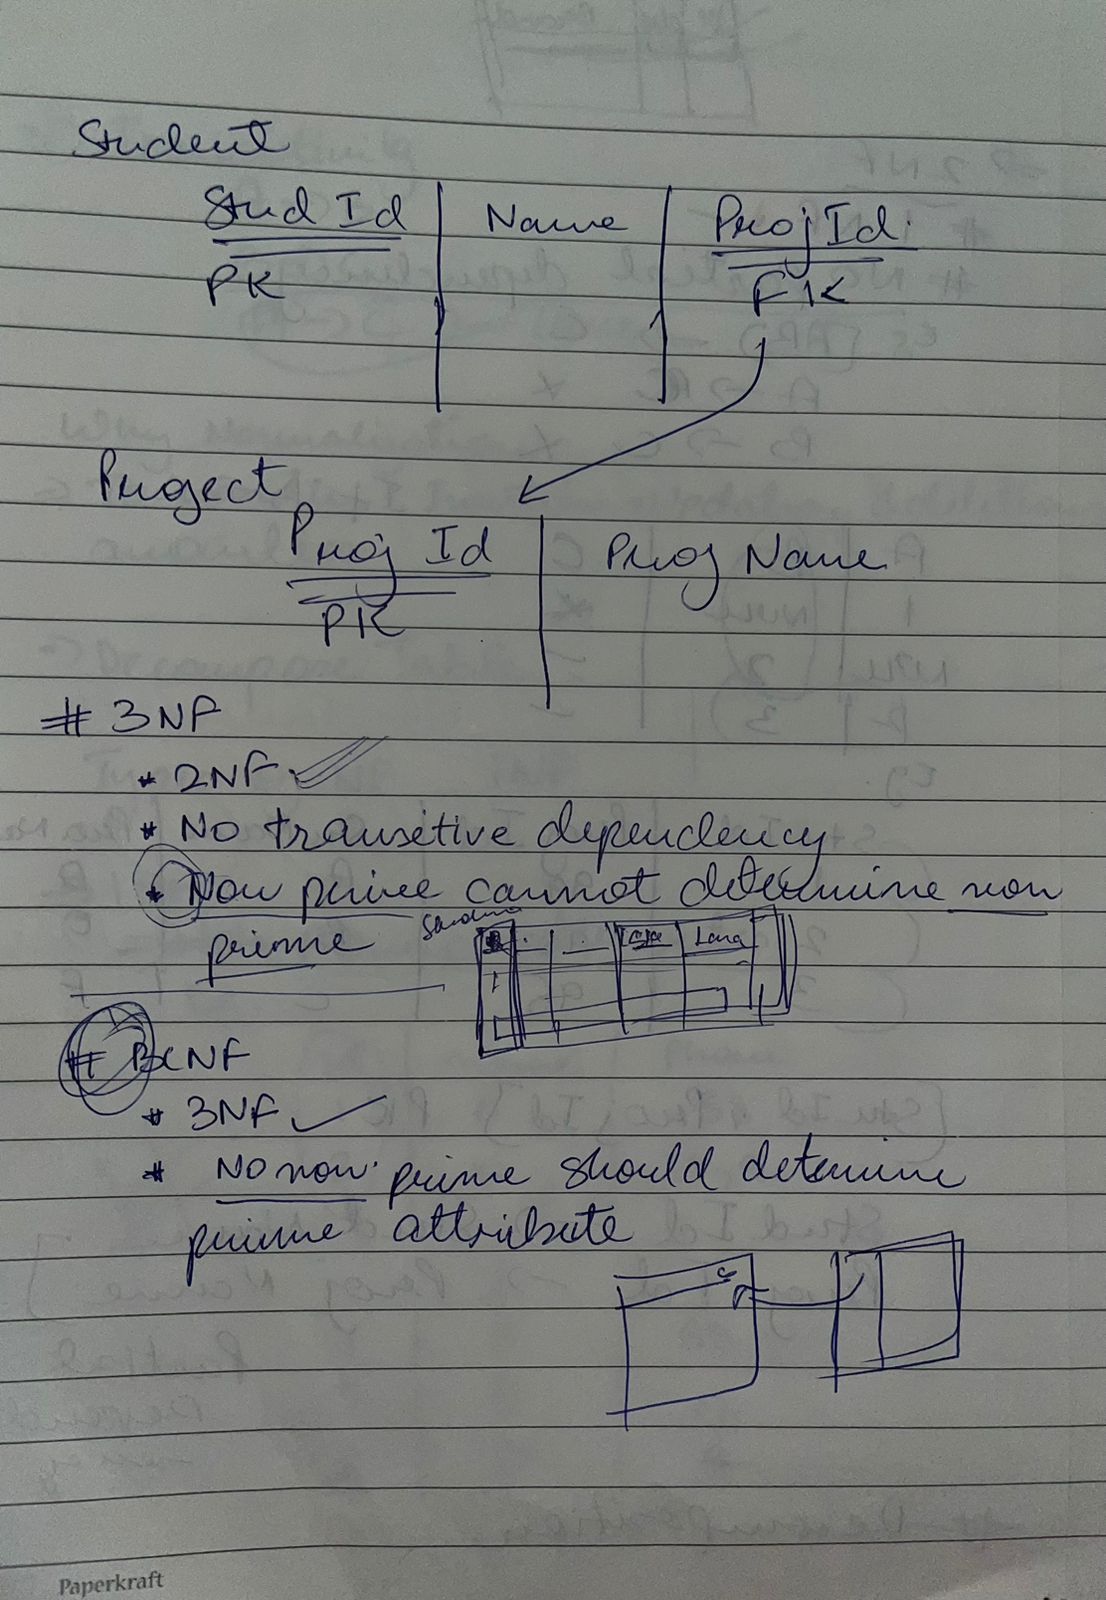 Student
Stud Id | Name | Proj Id
PK FK
Project
Proj Id | Proj Name
PK
# 3NF
* 2NF ✓
* No transitive dependency
* Non prime cannot determine non
prime
# BCNF
* 3NF ✓
* No non prime should detemine
prime attribute
Paperkraft